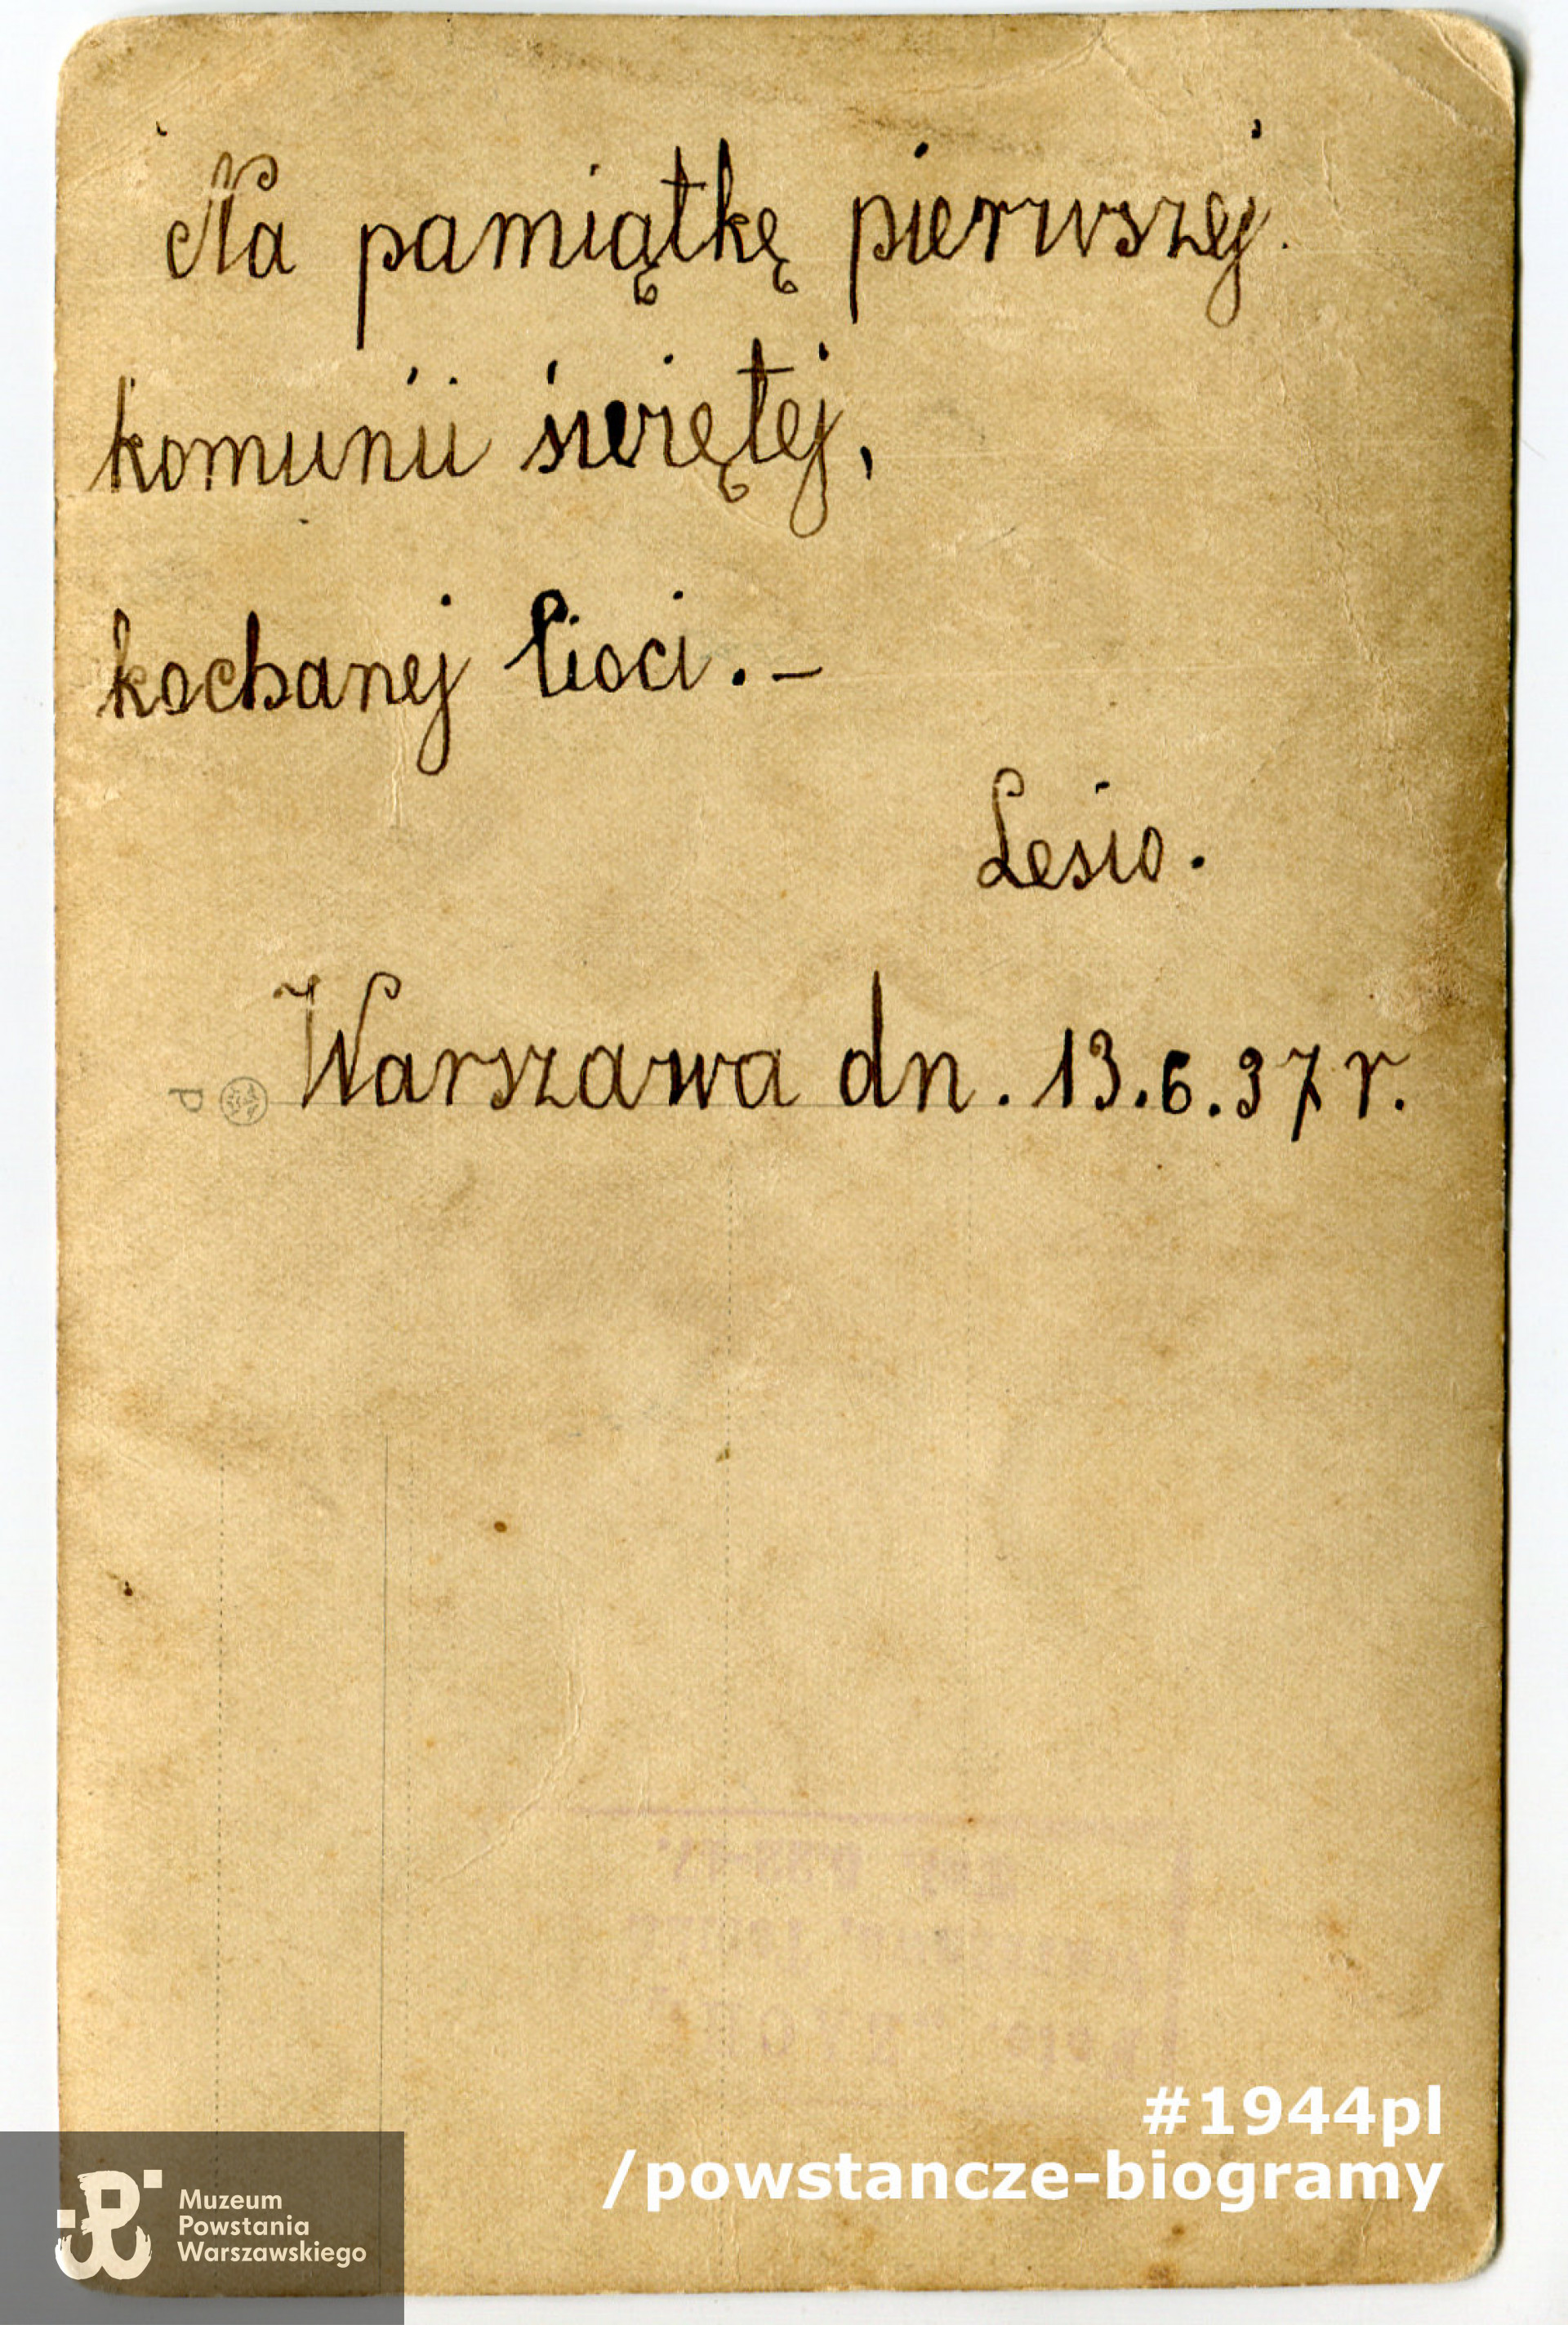 Na pamiątkę pierwszej.
komunii świętej,
kochanej Cioci. –
Lesio.
Warszawa dn. 13.6.37 r.
P
#1944pl
/powstancze-biogramy
Muzeum
Powstania
Warszawskiego